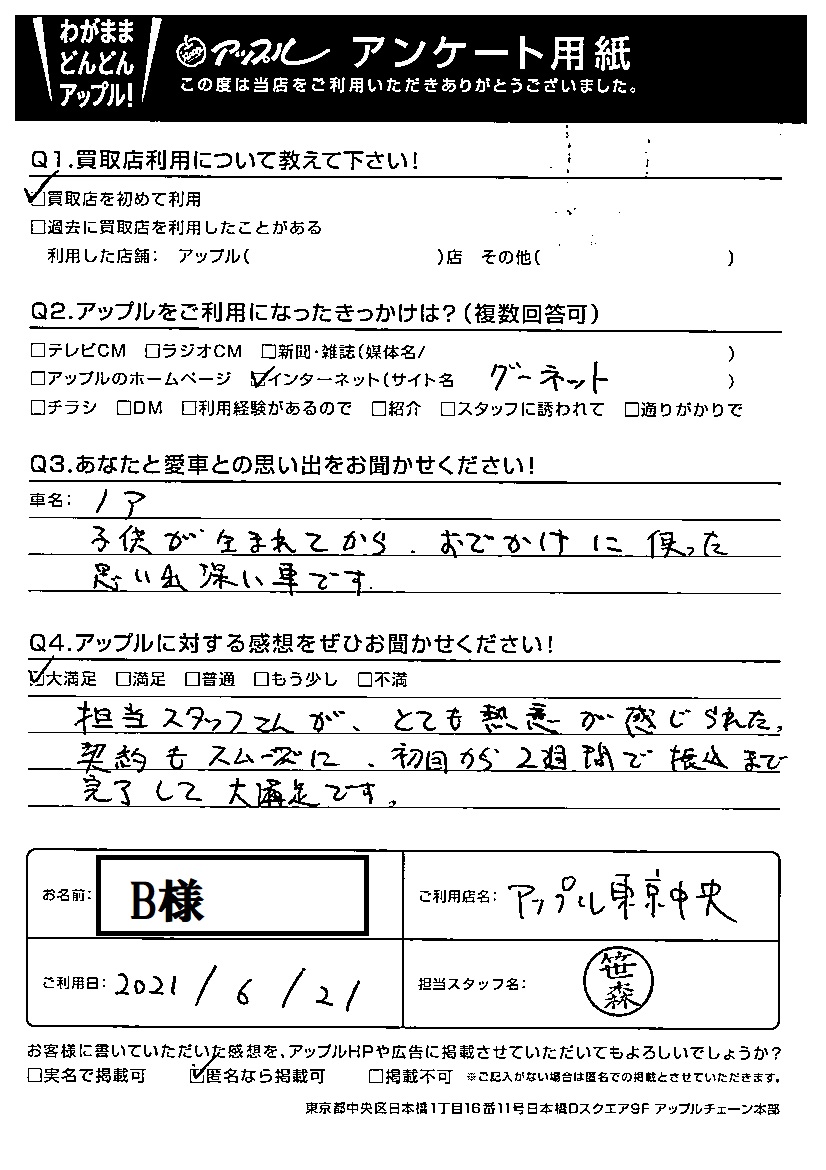 わがまま
どんどん
アップル!
アップル アンケート用紙
この度は当店をご利用いただきありがとうございました。
Q1.買取店利用について教えて下さい!
☑買取店を初めて利用
□過去に買取店を利用したことがある
利用した店舗: アップル( )店 その他( )
Q2.アップルをご利用になったきっかけは?(複数回答可)
□テレビCM □ラジオCM □新聞・雑誌(媒体名/ )
□アップルのホームページ ☑インターネット(サイト名 グーネット )
□チラシ □DM □利用経験があるので □紹介 □スタッフに誘われて □通りがかりで
Q3.あなたと愛車との思い出をお聞かせください!
車名: ノア
子供が生まれてから、おでかけに使った
思い出深い車です.
Q4.アップルに対する感想をぜひお聞かせください!
☑大満足 □満足 □普通 □もう少し □不満
担当スタッフさんが、とても熱意が感じられた。
契約もスムーズに、初回から2週間で振込まで
完了して大満足です。
お名前: B様
ご利用店名: アップル東京中央
ご利用日: 2021/6/21
担当スタッフ名: 笹森
お客様に書いていただいた感想を、アップルHPや広告に掲載させていただいてもよろしいでしょうか?
□実名で掲載可 ☑匿名なら掲載可 □掲載不可 ※ご記入がない場合は匿名での掲載とさせていただきます。
東京都中央区日本橋1丁目16番11号日本橋Dスクエア9F アップルチェーン本部